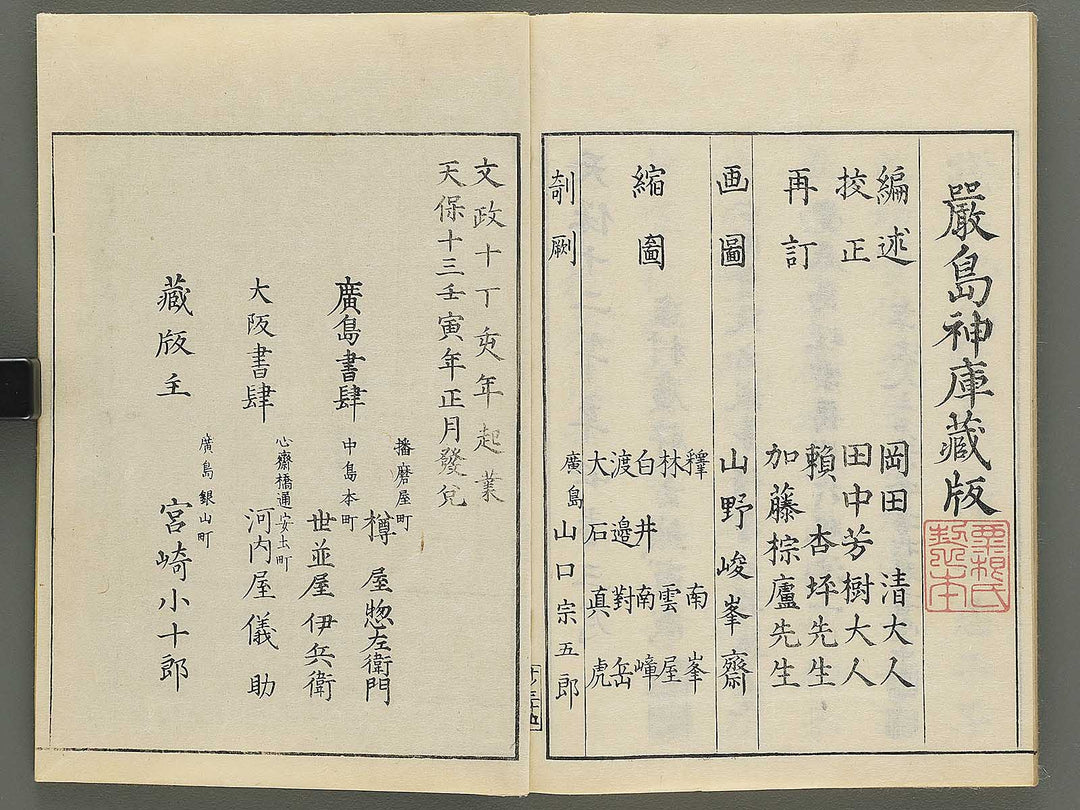 嚴島神庫藏版
編述 岡田 清大人
挍正 田中芳樹大人
再訂 賴 杏坪先生
加藤棕廬先生
画圖 山野峻峯齋
縮圖 釋 南峯
林 雲屋
白井南嶂
渡邉對岳
大石真虎
剞劂 廣島 山口宗五郎
文政十丁亥年起業
天保十三壬寅年正月發兌
廣島書肆 播磨屋町 樽屋惣左衛門
中島本町 世並屋伊兵衛
大阪書肆 心齋橋通安土町 河内屋儀助
藏版主 廣島銀山町 宮崎小十郎